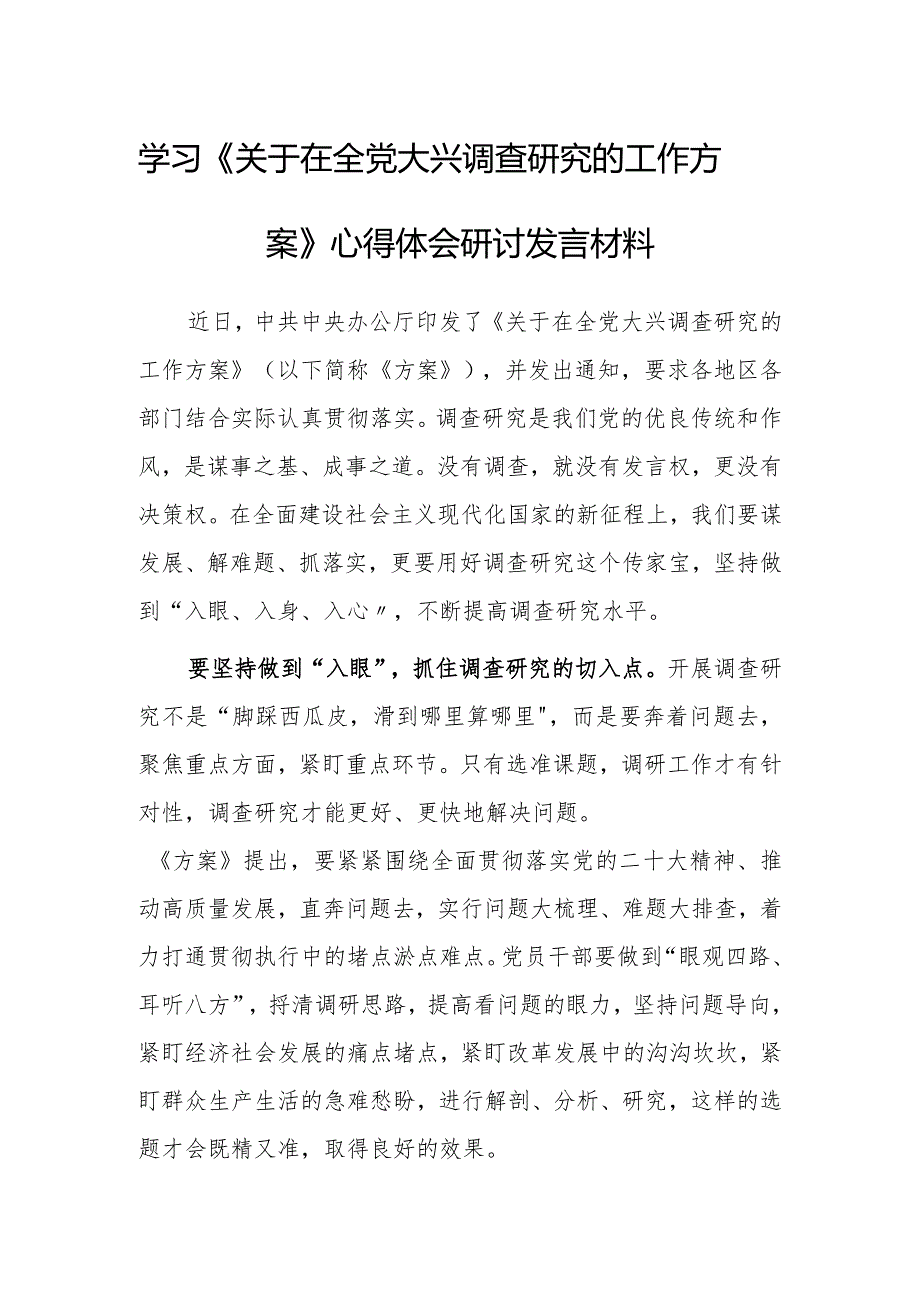 学习《关于在全党大兴调查研究的工作方
案》心得体会研讨发言材料
近日，中共中央办公厅印发了《关于在全党大兴调查研究的
工作方案》（以下简称《方案》），并发出通知，要求各地区各
部门结合实际认真贯彻落实。调查研究是我们党的优良传统和作
风，是谋事之基、成事之道。没有调查，就没有发言权，更没有
决策权。在全面建设社会主义现代化国家的新征程上，我们要谋
发展、解难题、抓落实，更要用好调查研究这个传家宝，坚持做
到“入眼、入身、入心〃，不断提高调查研究水平。
要坚持做到“入眼”，抓住调查研究的切入点。开展调查研
究不是“脚踩西瓜皮，滑到哪里算哪里"，而是要奔着问题去，
聚焦重点方面，紧盯重点环节。只有选准课题，调研工作才有针
对性，调查研究才能更好、更快地解决问题。
《方案》提出，要紧紧围绕全面贯彻落实党的二十大精神、推
动高质量发展，直奔问题去，实行问题大梳理、难题大排查，着
力打通贯彻执行中的堵点淤点难点。党员干部要做到“眼观四路、
耳听八方”，捋清调研思路，提高看问题的眼力，坚持问题导向，
紧盯经济社会发展的痛点堵点，紧盯改革发展中的沟沟坎坎，紧
盯群众生产生活的急难愁盼，进行解剖、分析、研究，这样的选
题才会既精又准，取得良好的效果。